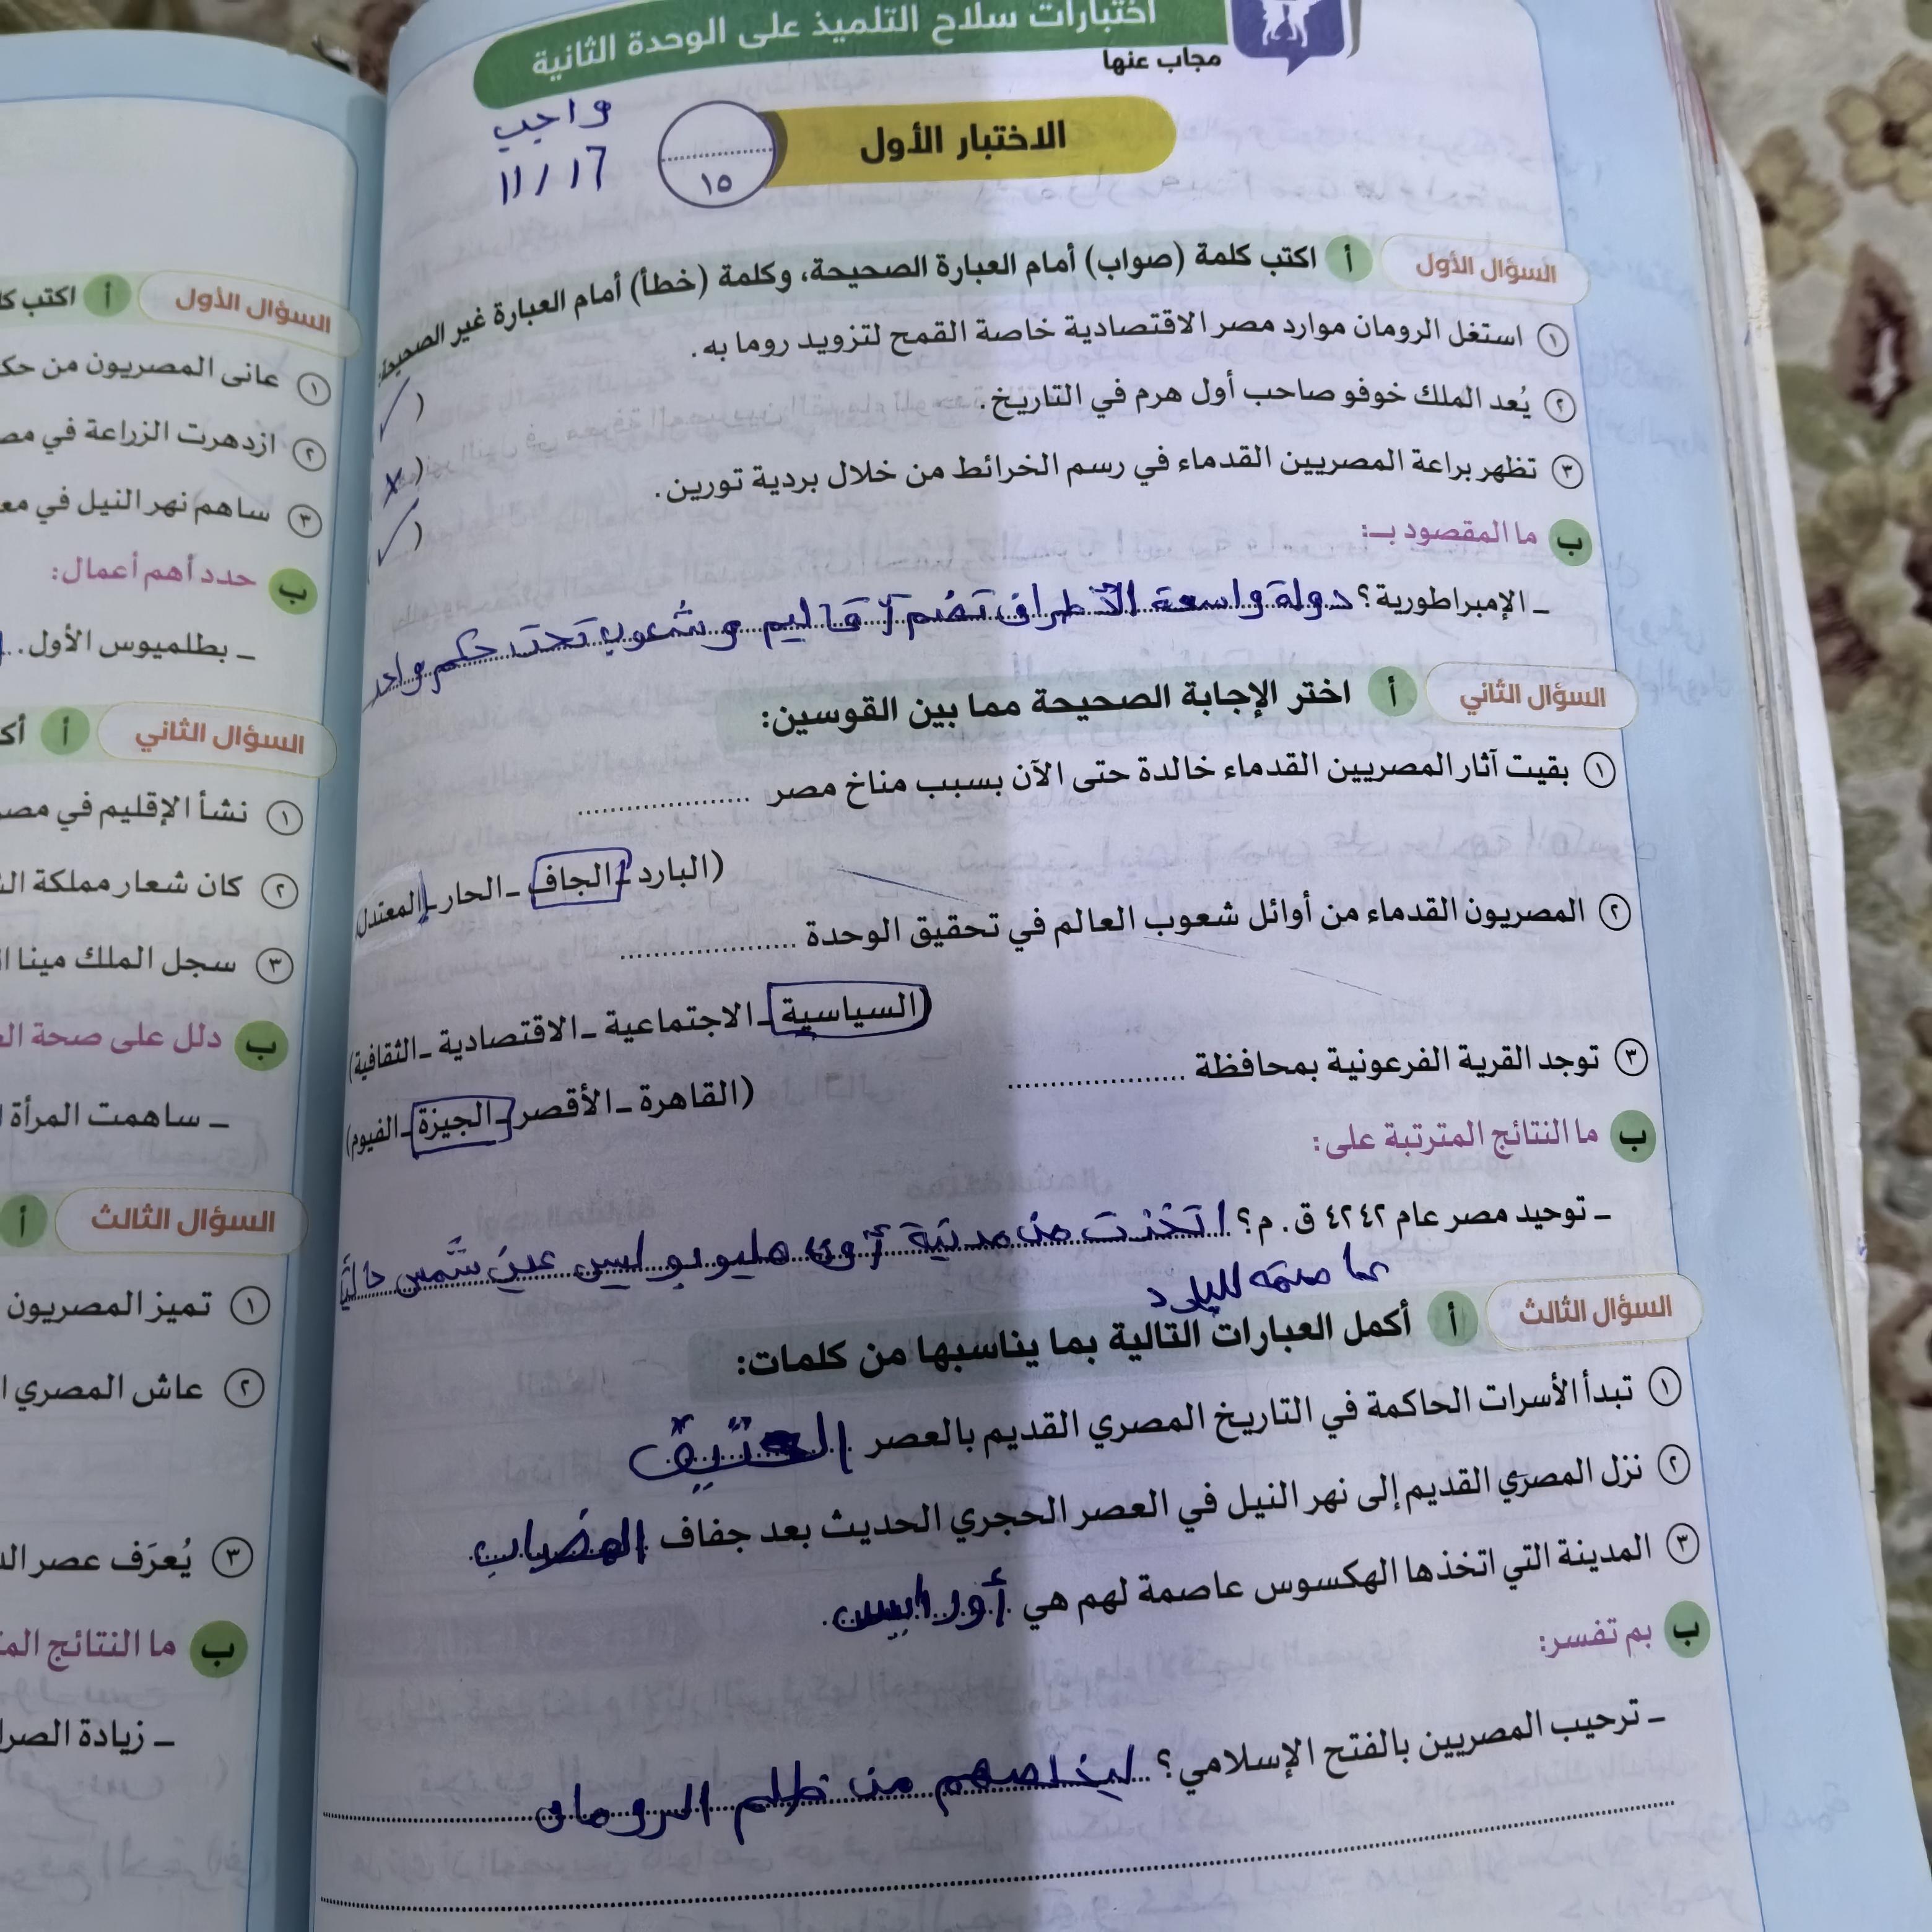 اختبارات سلاح التلميذ على الوحدة الثانية
مجاب عنها
واجب
١١/١٦
الاختبار الأول
١٥
السؤال الأول أ اكتب كلمة (صواب) أمام العبارة الصحيحة، وكلمة (خطأ) أمام العبارة غير الصحيحة:
١ استغل الرومان موارد مصر الاقتصادية خاصة القمح لتزويد روما به. (✓
٢ يُعد الملك خوفو صاحب أول هرم في التاريخ. (x
٣ تظهر براعة المصريين القدماء في رسم الخرائط من خلال بردية تورين. (✓
ب ما المقصود بـ:
ـ الإمبراطورية؟ دولة واسعة الأطراف تضم أقاليم وشعوب تحت حكم واحد
السؤال الثاني أ اختر الإجابة الصحيحة مما بين القوسين:
١ بقيت آثار المصريين القدماء خالدة حتى الآن بسبب مناخ مصر ....................
(البارد ـ الجاف ـ الحار ـ المعتدل)
٢ المصريون القدماء من أوائل شعوب العالم في تحقيق الوحدة ....................
(السياسية ـ الاجتماعية ـ الاقتصادية ـ الثقافية)
٣ توجد القرية الفرعونية بمحافظة ....................
(القاهرة ـ الأقصر ـ الجيزة ـ الفيوم)
ب ما النتائج المترتبة على:
ـ توحيد مصر عام ٤٢٤٢ ق.م؟ اتخذت من مدنية أون هليوبوليس عين شمس حاليًا
عاصمة للبلاد
السؤال الثالث أ أكمل العبارات التالية بما يناسبها من كلمات:
١ تبدأ الأسرات الحاكمة في التاريخ المصري القديم بالعصر العتيق
٢ نزل المصري القديم إلى نهر النيل في العصر الحجري الحديث بعد جفاف الهضاب
٣ المدينة التي اتخذها الهكسوس عاصمة لهم هي أورايس.
ب بم تفسر:
ـ ترحيب المصريين بالفتح الإسلامي؟ ليخلصهم من ظلم الرومان
السؤال الأول أ اكتب
١ عانى المصريون من
٢ ازدهرت الزراعة في
٣ ساهم نهر النيل في
ب حدد أهم أعمال:
ـ بطلميوس الأول.
السؤال الثاني أ
١ نشأ الإقليم في
٢ كان شعار مملكة
٣ سجل الملك مينا
ب دلل على صحة
ـ ساهمت المرأة
السؤال الثالث أ
١ تميز المصريون
٢ عاش المصري
٣ يُعرَف عصر
ب ما النتائج
ـ زيادة